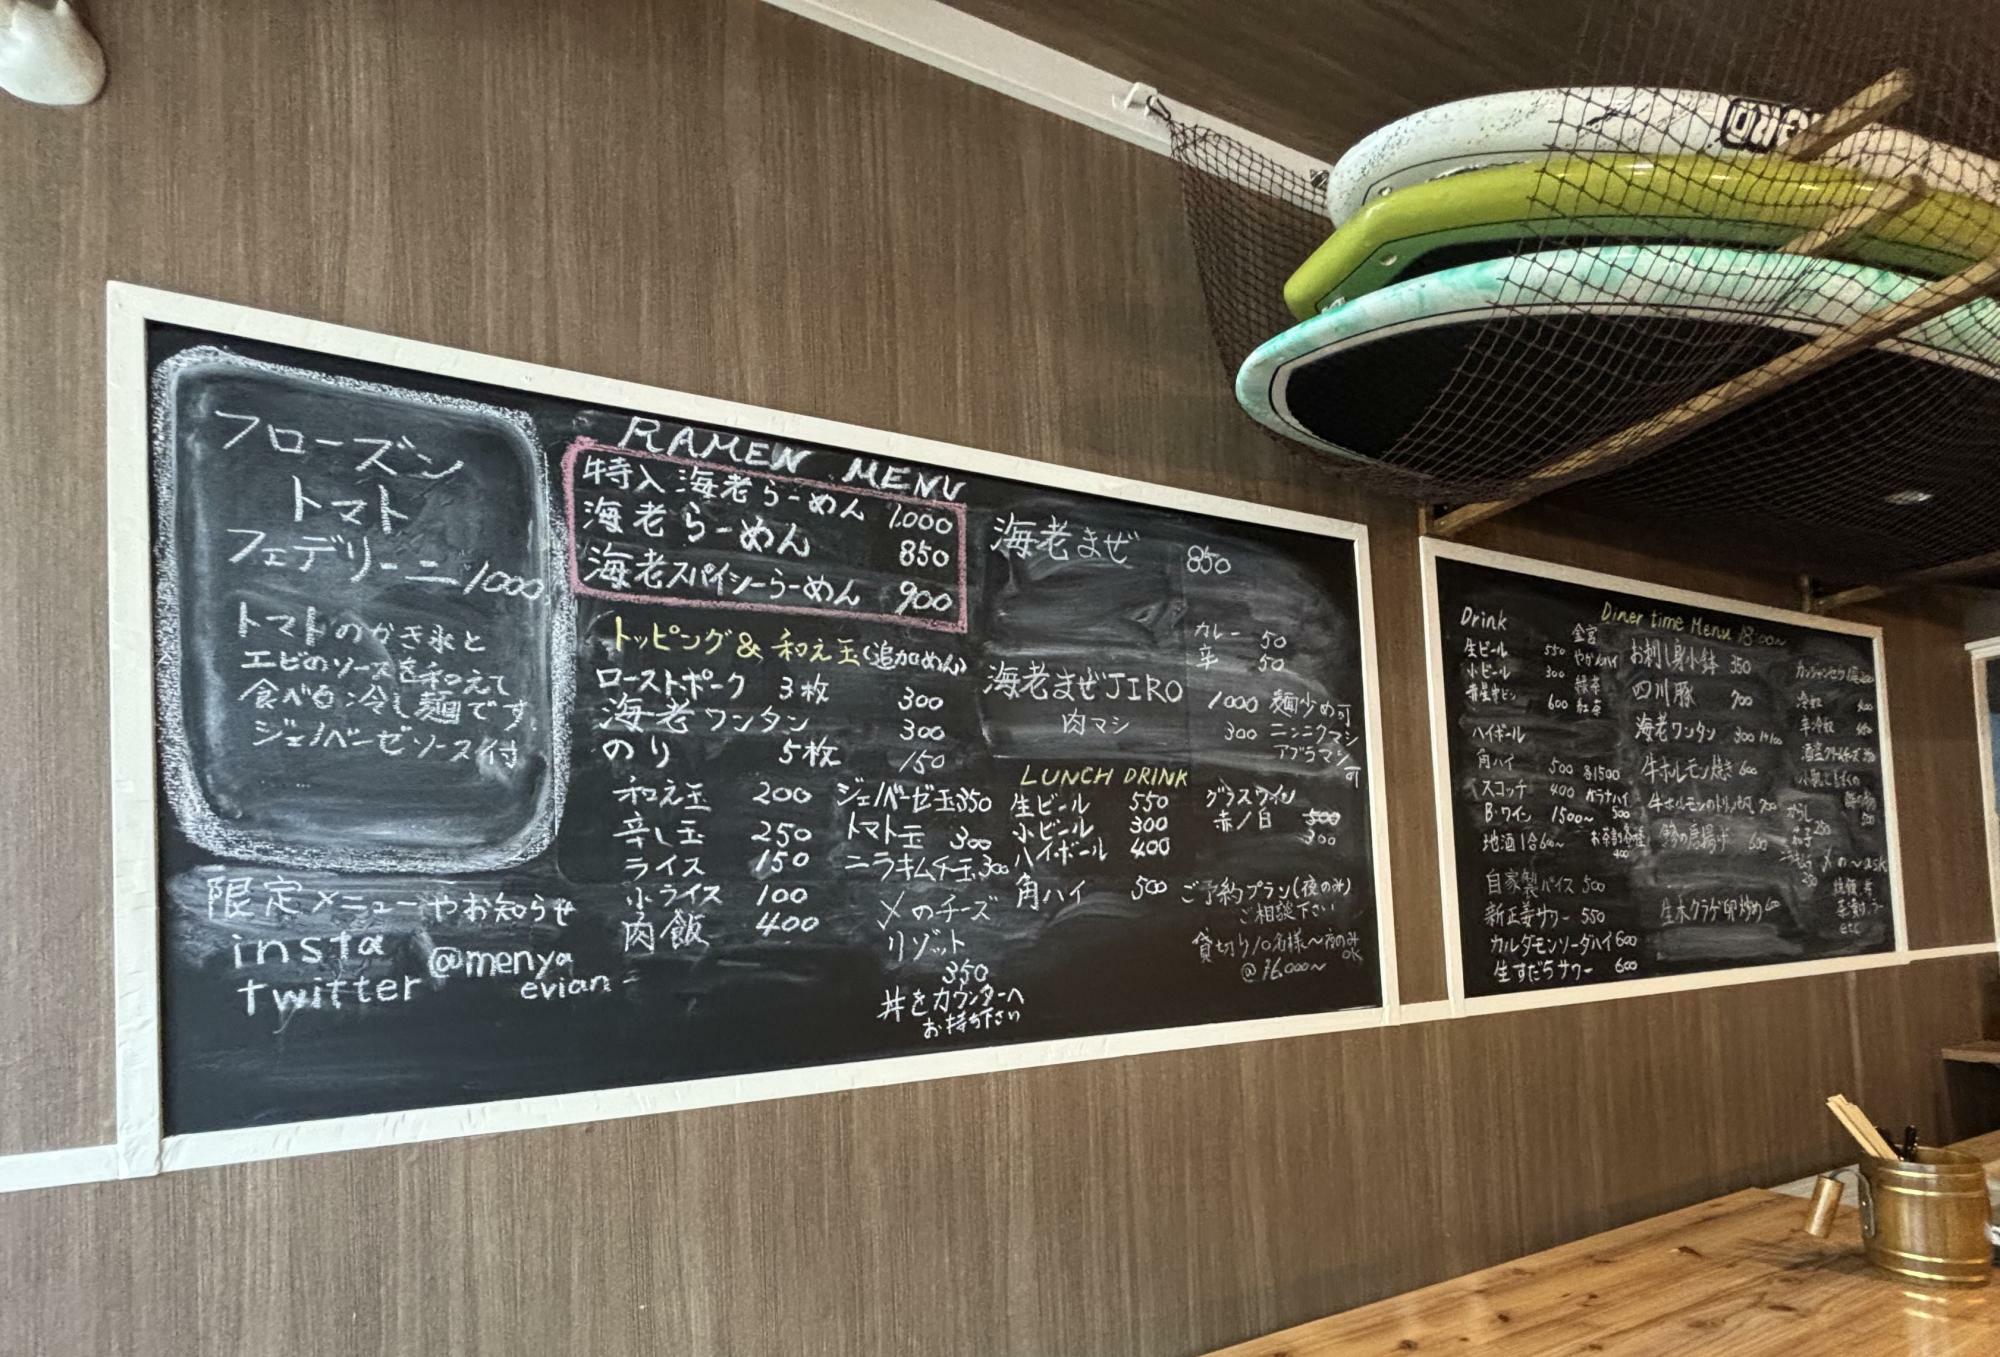 フローズン
トマト
フェデリーニ 1000
トマトのかき氷と
エビのソースを和えて
食べる冷し麺です。
ジェノベーゼソース付
限定メニューやお知らせ
insta
twitter
@menya
evian
RAMEN MENU
特入海老らーめん 1,000
海老らーめん 850
海老スパイシーらーめん 900
トッピング & 和え玉(追加めん)
ローストポーク 3枚 300
海老ワンタン 300
のり 5枚 150
和え玉 200
辛し玉 250
ライス 150
小ライス 100
肉飯 400
ジェノベーゼ玉 350
トマト玉 300
ニラキムチ玉 300
〆のチーズ
リゾット
350
丼をカウンターへ
お持ち下さい
海老まぜ 850
カレー 50
辛 50
海老まぜJIRO 1000 麺少め可
肉マシ 300 ニンニクマシ
アブラマシ
可
LUNCH DRINK
生ビール 550
小ビール 300
ハイボール 400
角ハイ 500
グラスワイン
赤/白 500
300
ご予約プラン(夜のみ)
ご相談下さい
貸切り10名様〜夜のみ
OK
@¥6,000〜
Drink
生ビール 550
小ビール 300
600
ハイボール
角ハイ 500
スコッチ 400
B・ワイン 1500〜
地酒1合600〜
自家製バイス 500
新正姜サワー 550
カルダモンソーダハイ 600
生すだちサワー 600
金宮
やかんハイ
緑茶
紅茶
500
400
Diner time Menu 18:00〜
お刺し身小鉢 350
四川豚 700
海老ワンタン 300
牛ホルモン焼き 600
の唐揚げ 600
生木クラゲ卵炒め
冷奴
辛冷奴
からし
茄子
250
〆の〜ask
etc